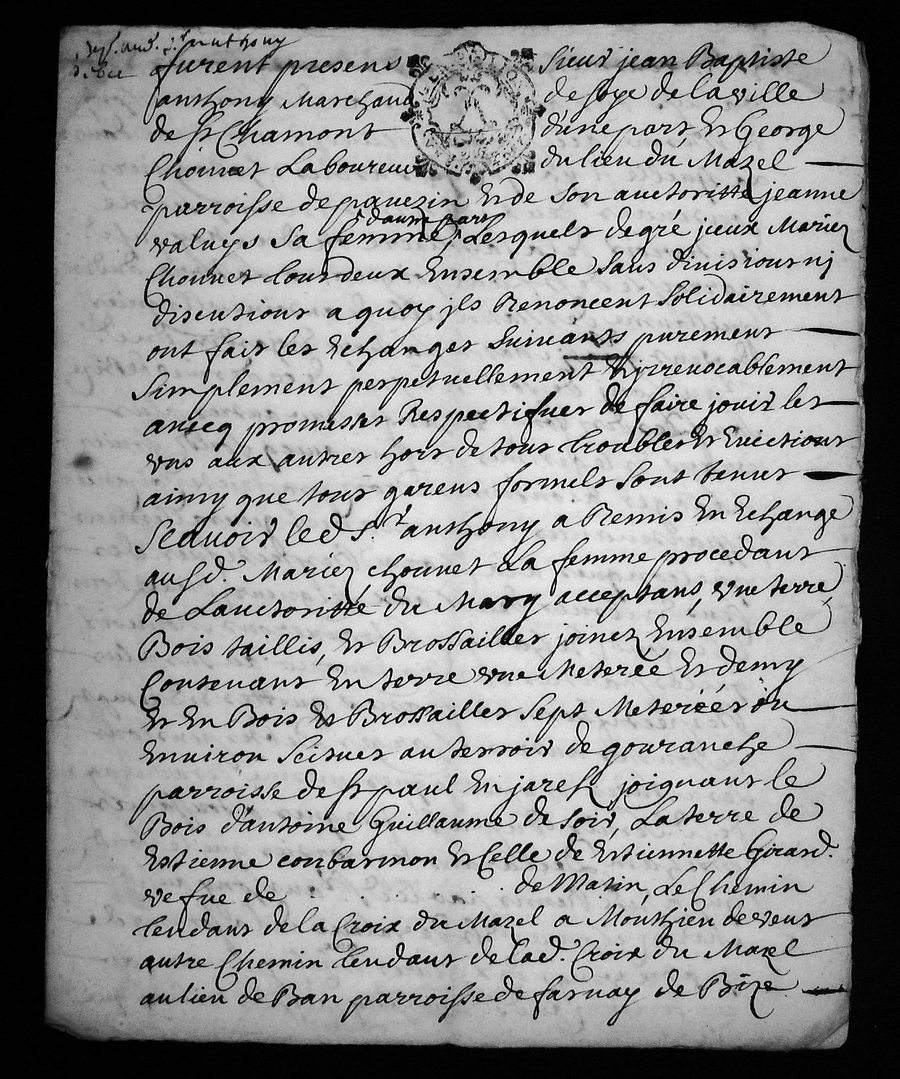 furent presens Sieur jean Baptiste
anthony Marchand de soye de la ville
de St. Chamont d'une part Et George
Chounet Laboureur du lieu du Mazel
parroisse de pavezin Et de son auctoritté jeanne
valuys sa femme d'autre part Lesquels de gré jceux Mariez
Chounet tous deux Ensemble sans diuision nj
discution a quoy jls Renoncent solidairement
ont fait les Echanges suiuants purement
simplement perpetuellement Et jrreuocablement
auecq promesses Respectifues de faire jouir les
vns aux autres hors de tous troubles Et Euictions
ainsy que tous garens formels sont tenus
Scauoir led. Sr. anthony a Remis En Echange
ausd. Mariez chounet La femme procedant
de Lauctoritté du Mary acceptans, vne terre,
Bois taillis, Et Brossailles joinez Ensemble
Contenant En terre vne Meterée Et demy
Et En Bois Et Brossailles sept Meterées ou
Enuiron scitues au terroir de gouranche
parroisse de St paul En jarest joignant le
Bois d'antoine Guillaume de soir, La terre de
Estienne coubarmon Et Celle de Estiennette Girard.
vefue de de Matin, Le Chemin
tendant de la Croix du Mazel a Monthieu de vent
autre Chemin tendant de lad. Croix du Mazel
au lieu de Ban parroisse de farnay de Bize